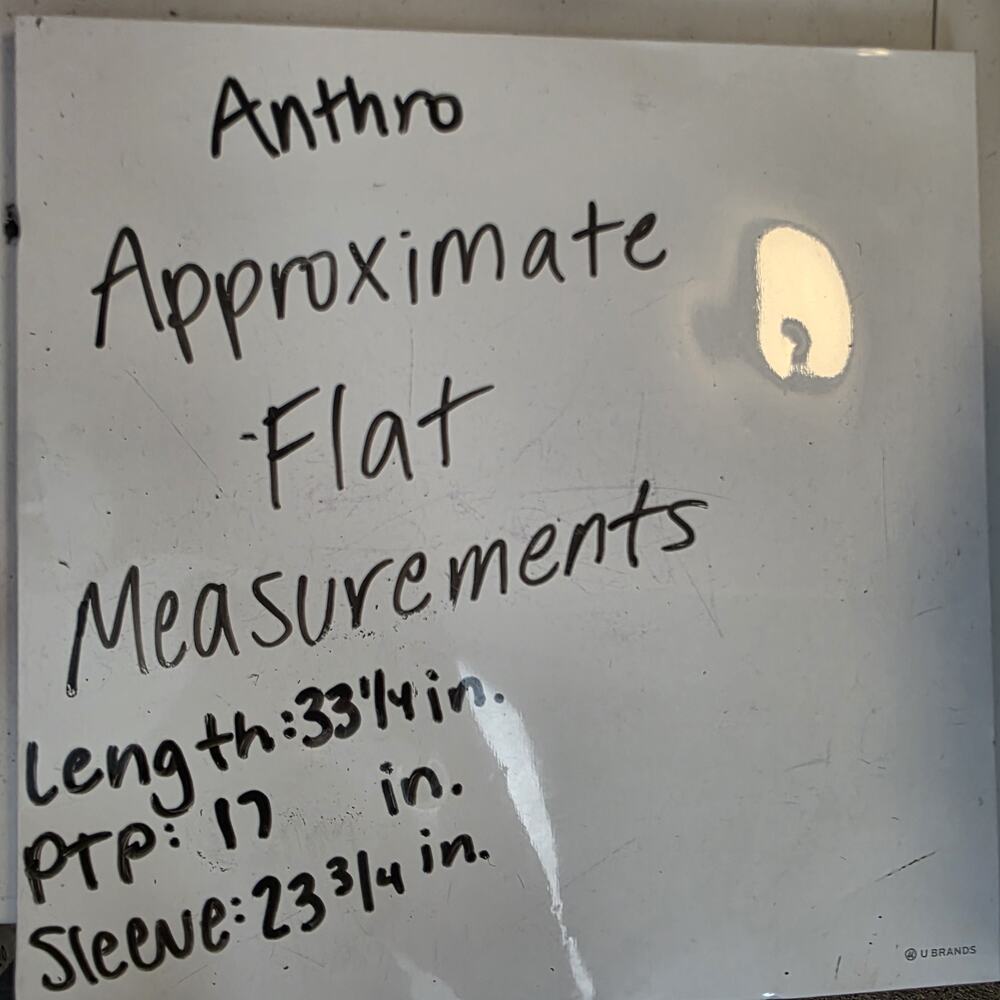 Anthro
Approximate
-Flat
Measurements
Length: 33 1/4 in.
PTP: 17 in.
Sleeve: 23 3/4 in.
U BRANDS